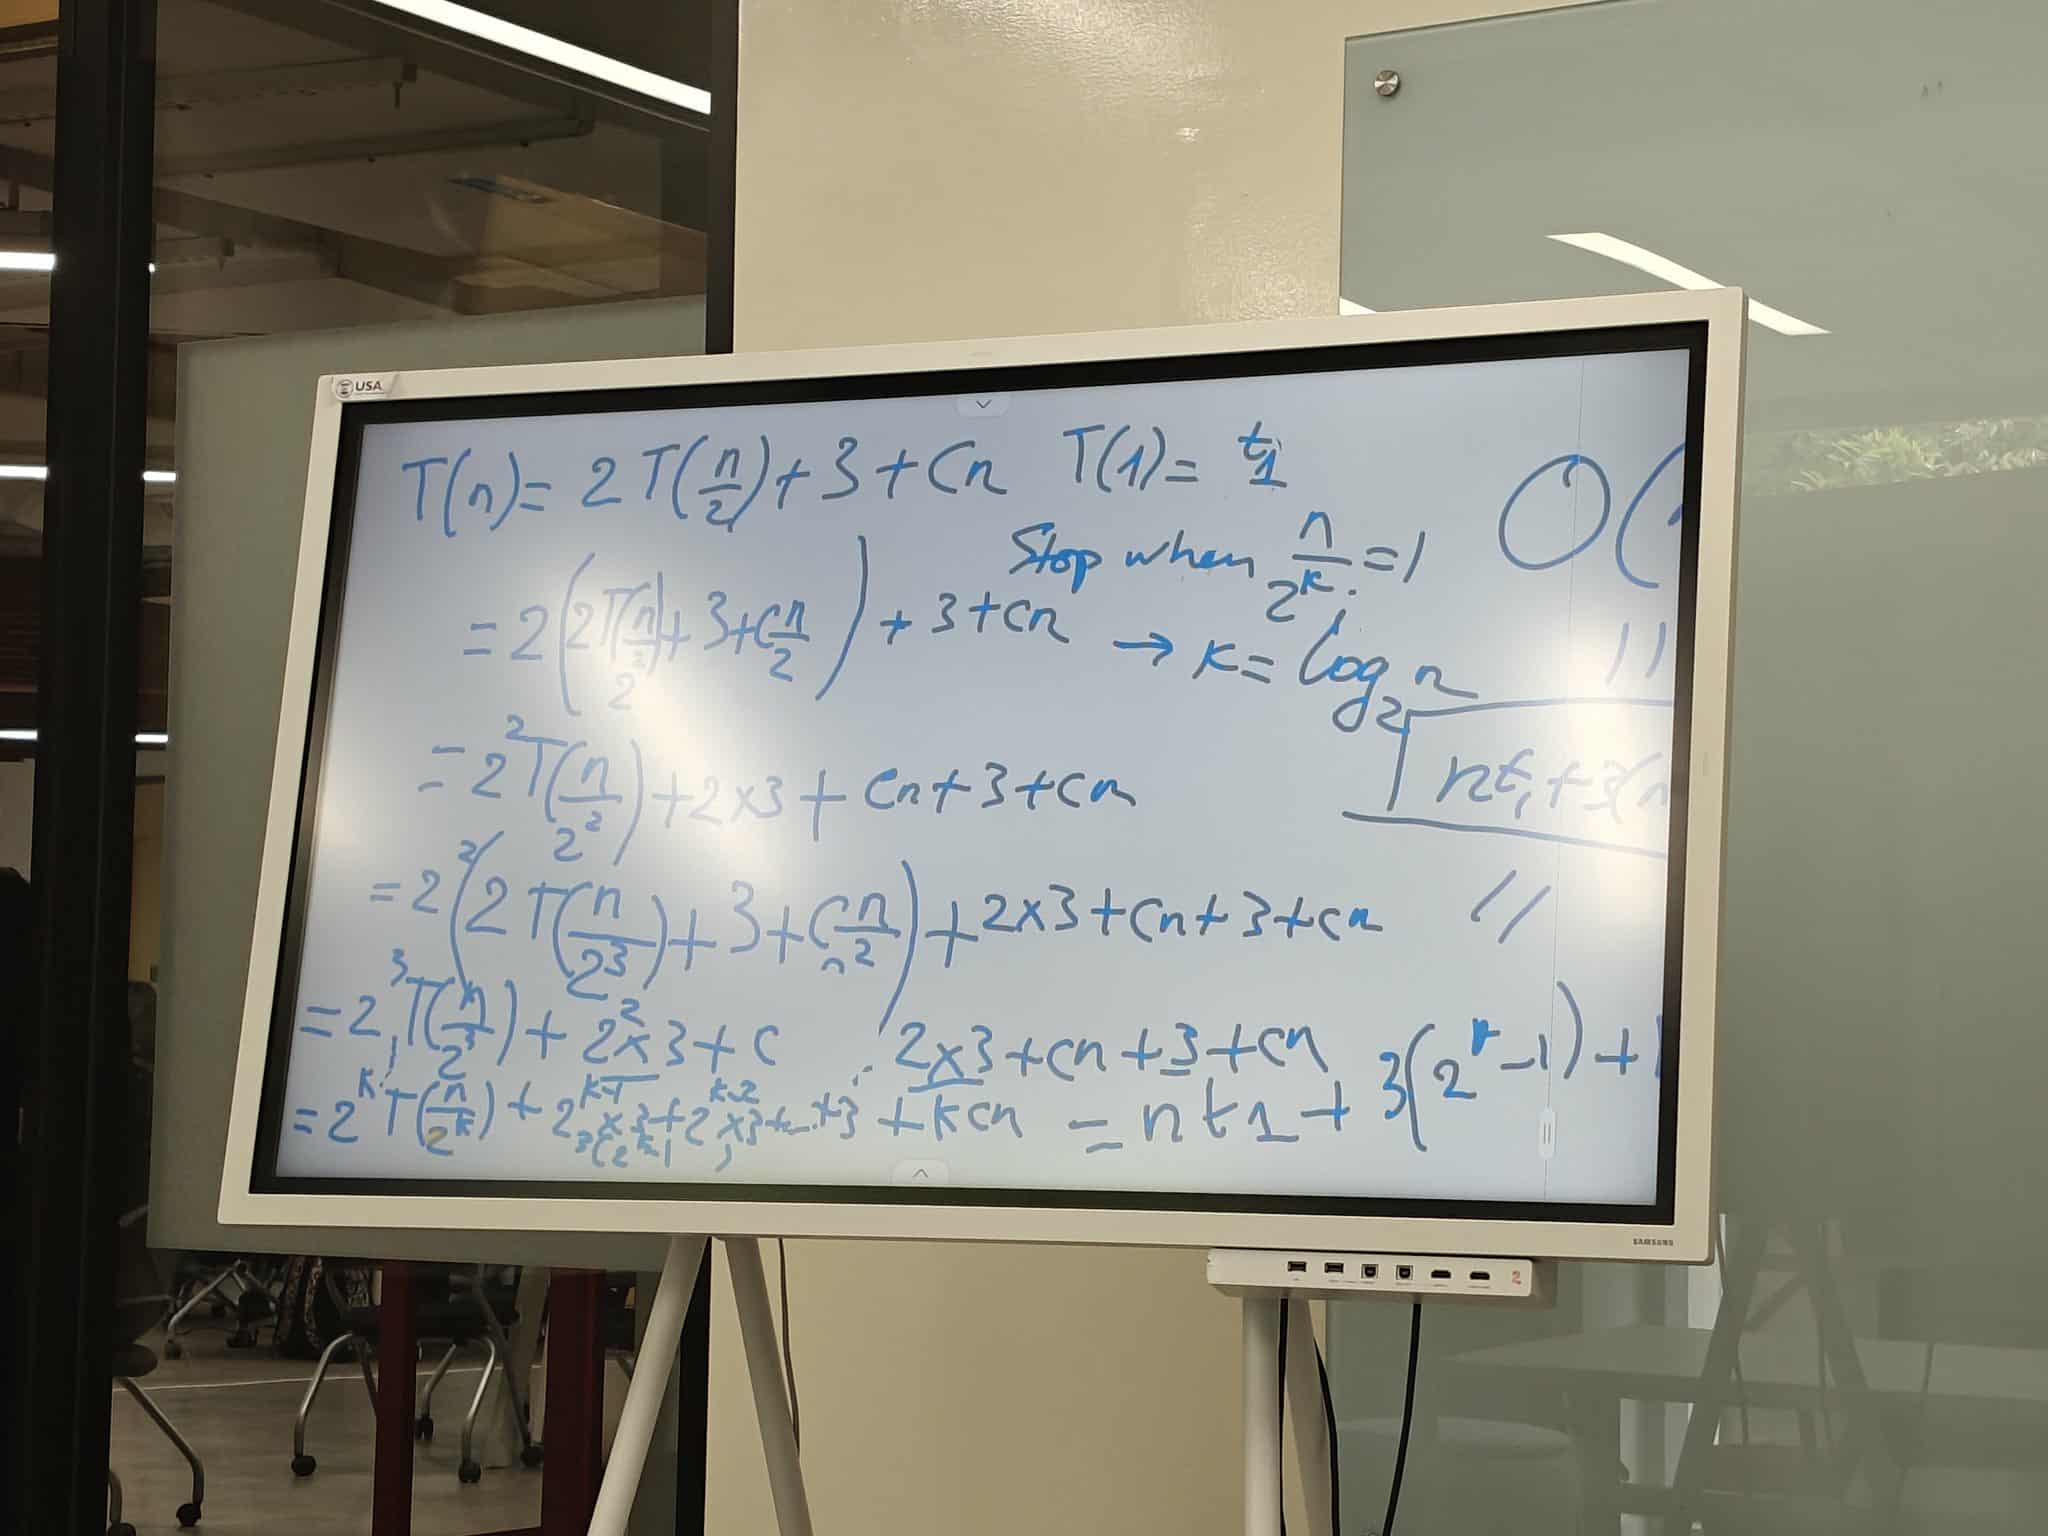 USA
T(n)= 2T(n/2)+3+Cn T(1)= t1
O(
Stop when n/2^k =1
= 2(2T(n/2/2)+3+Cn/2)+3+Cn → K= log2 n
= 2^2 T(n/2^2)+2x3+Cn+3+Cn
nt1+3(n
= 2^2(2T(n/2^3)+3+Cn/2^2)+2x3+Cn+3+Cn
= 2^3 T(n/2^3)+2^2x3+C 2x3+Cn+3+Cn
= 2^k T(n/2^k)+2^k-1 x3+2^k-2 x3+...+3+kcn = nt1+3(2^k-1)+
3(2^k-1)
SAMSUNG
2